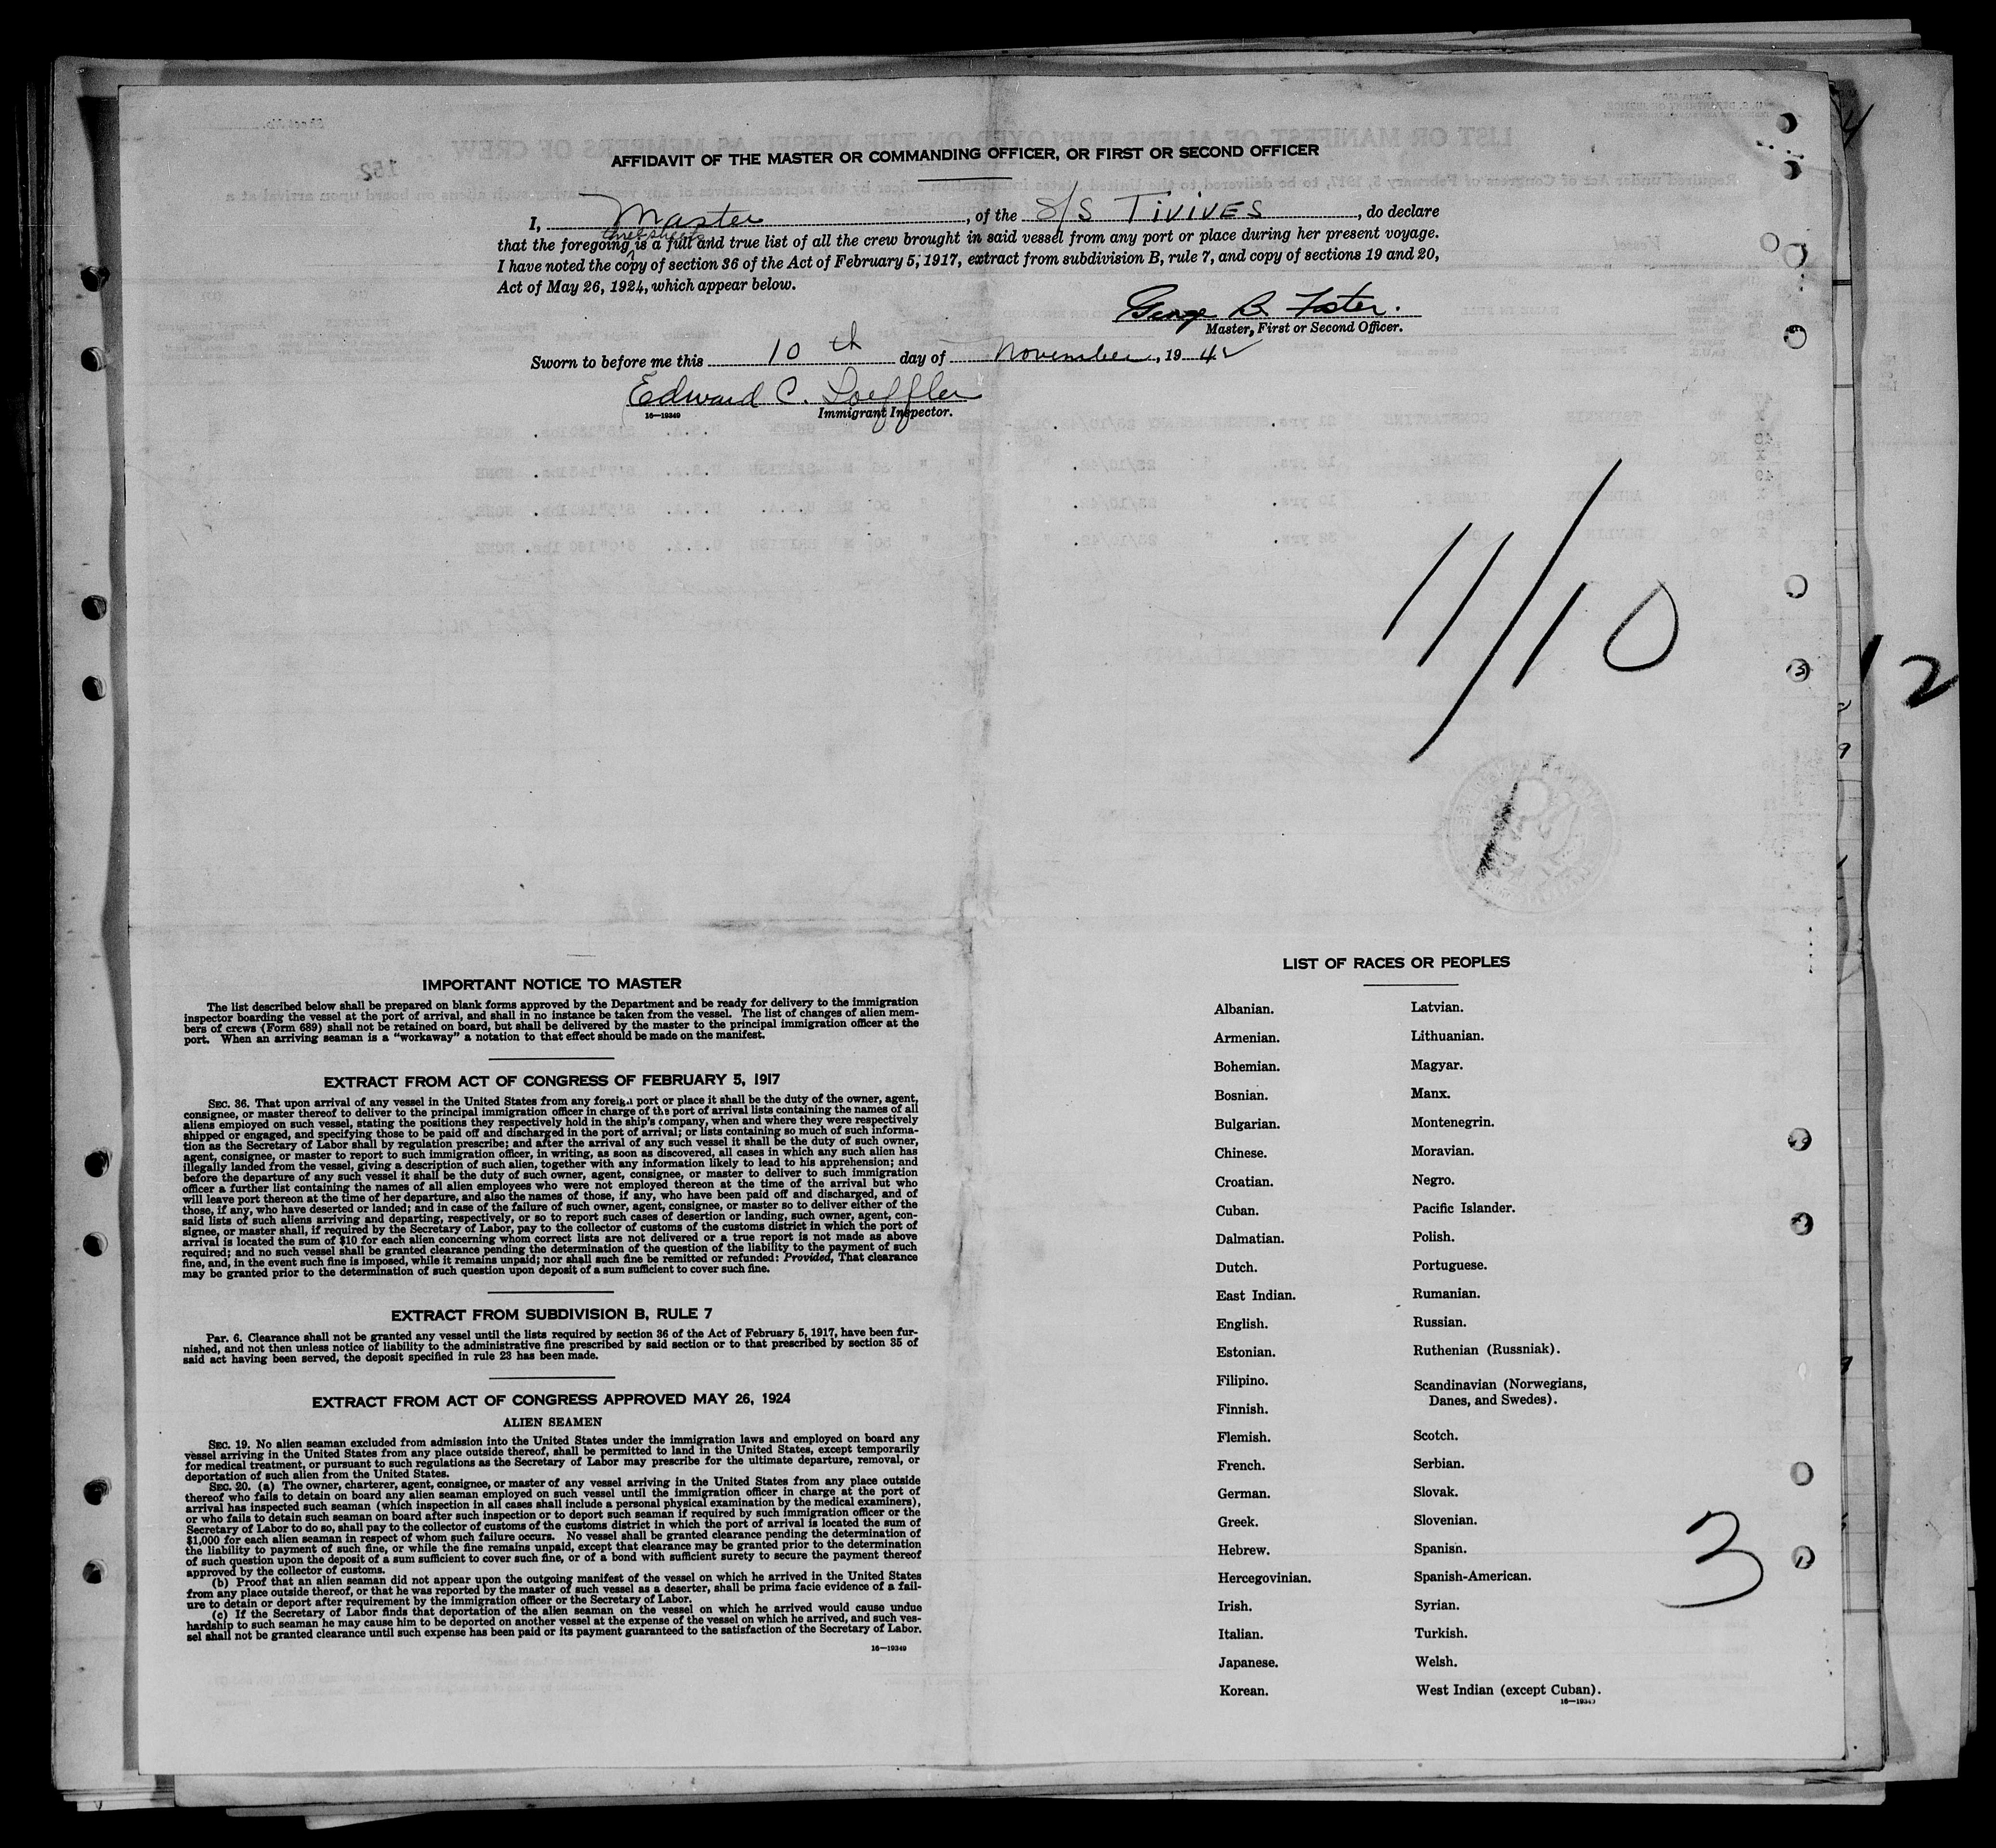 AFFIDAVIT OF THE MASTER OR COMMANDING OFFICER, OR FIRST OR SECOND OFFICER
I, Master, of the S/S TIVIVES, do declare
three sheets
that the foregoing is a full and true list of all the crew brought in said vessel from any port or place during her present voyage.
I have noted the copy of section 36 of the Act of February 5, 1917, extract from subdivision B, rule 7, and copy of sections 19 and 20,
Act of May 26, 1924, which appear below.
George B. Foster.
Master, First or Second Officer.
Sworn to before me this 10th day of November, 1942
Edward C. Loeffler
16—19349 Immigrant Inspector.
11/10
12
IMPORTANT NOTICE TO MASTER
The list described below shall be prepared on blank forms approved by the Department and be ready for delivery to the immigration
inspector boarding the vessel at the port of arrival, and shall in no instance be taken from the vessel. The list of changes of alien mem-
bers of crews (Form 689) shall not be retained on board, but shall be delivered by the master to the principal immigration officer at the
port. When an arriving seaman is a "workaway" a notation to that effect should be made on the manifest.
EXTRACT FROM ACT OF CONGRESS OF FEBRUARY 5, 1917
SEC. 36. That upon arrival of any vessel in the United States from any foreign port or place it shall be the duty of the owner, agent,
consignee, or master thereof to deliver to the principal immigration officer in charge of the port of arrival lists containing the names of all
aliens employed on such vessel, stating the positions they respectively hold in the ship's company, when and where they were respectively
shipped or engaged, and specifying those to be paid off and discharged in the port of arrival; or lists containing so much of such informa-
tion as the Secretary of Labor shall by regulation prescribe; and after the arrival of any such vessel it shall be the duty of such owner,
agent, consignee, or master to report to such immigration officer, in writing, as soon as discovered, all cases in which any such alien has
illegally landed from the vessel, giving a description of such alien, together with any information likely to lead to his apprehension; and
before the departure of any such vessel it shall be the duty of such owner, agent, consignee, or master to deliver to such immigration
officer a further list containing the names of all alien employees who were not employed thereon at the time of the arrival but who
will leave port thereon at the time of her departure, and also the names of those, if any, who have been paid off and discharged, and of
those, if any, who have deserted or landed; and in case of the failure of such owner, agent, consignee, or master so to deliver either of the
said lists of such aliens arriving and departing, respectively, or so to report such cases of desertion or landing, such owner, agent, con-
signee, or master shall, if required by the Secretary of Labor, pay to the collector of customs of the customs district in which the port of
arrival is located the sum of $10 for each alien concerning whom correct lists are not delivered or a true report is not made as above
required; and no such vessel shall be granted clearance pending the determination of the question of the liability to the payment of such
fine, and, in the event such fine is imposed, while it remains unpaid; nor shall such fine be remitted or refunded: Provided, That clearance
may be granted prior to the determination of such question upon deposit of a sum sufficient to cover such fine.
EXTRACT FROM SUBDIVISION B, RULE 7
Par. 6. Clearance shall not be granted any vessel until the lists required by section 36 of the Act of February 5, 1917, have been fur-
nished, and not then unless notice of liability to the administrative fine prescribed by said section or to that prescribed by section 35 of
said act having been served, the deposit specified in rule 23 has been made.
EXTRACT FROM ACT OF CONGRESS APPROVED MAY 26, 1924
ALIEN SEAMEN
SEC. 19. No alien seaman excluded from admission into the United States under the immigration laws and employed on board any
vessel arriving in the United States from any place outside thereof, shall be permitted to land in the United States, except temporarily
for medical treatment, or pursuant to such regulations as the Secretary of Labor may prescribe for the ultimate departure, removal, or
deportation of such alien from the United States.
SEC. 20. (a) The owner, charterer, agent, consignee, or master of any vessel arriving in the United States from any place outside
thereof who fails to detain on board any alien seaman employed on such vessel until the immigration officer in charge at the port of
arrival has inspected such seaman (which inspection in all cases shall include a personal physical examination by the medical examiners),
or who fails to detain such seaman on board after such inspection or to deport such seaman if required by such immigration officer or the
Secretary of Labor to do so, shall pay to the collector of customs of the customs district in which the port of arrival is located the sum of
$1,000 for each alien seaman in respect of whom such failure occurs. No vessel shall be granted clearance pending the determination of
the liability to payment of such fine, or while the fine remains unpaid, except that clearance may be granted prior to the determination
of such question upon the deposit of a sum sufficient to cover such fine, or of a bond with sufficient surety to secure the payment thereof
approved by the collector of customs.
(b) Proof that an alien seaman did not appear upon the outgoing manifest of the vessel on which he arrived in the United States
from any place outside thereof, or that he was reported by the master of such vessel as a deserter, shall be prima facie evidence of a fail-
ure to detain or deport after requirement by the immigration officer or the Secretary of Labor.
(c) If the Secretary of Labor finds that deportation of the alien seaman on the vessel on which he arrived would cause undue
hardship to such seaman he may cause him to be deported on another vessel at the expense of the vessel on which he arrived, and such ves-
sel shall not be granted clearance until such expense has been paid or its payment guaranteed to the satisfaction of the Secretary of Labor.
16—19349
LIST OF RACES OR PEOPLES
Albanian. Latvian.
Armenian. Lithuanian.
Bohemian. Magyar.
Bosnian. Manx.
Bulgarian. Montenegrin.
Chinese. Moravian.
Croatian. Negro.
Cuban. Pacific Islander.
Dalmatian. Polish.
Dutch. Portuguese.
East Indian. Rumanian.
English. Russian.
Estonian. Ruthenian (Russniak).
Filipino. Scandinavian (Norwegians,
Danes, and Swedes).
Finnish.
Flemish. Scotch.
French. Serbian.
German. Slovak.
Greek. Slovenian.
Hebrew. Spanish.
Hercegovinian. Spanish-American.
Irish. Syrian.
Italian. Turkish.
Japanese. Welsh.
Korean. West Indian (except Cuban).
16—19349
3